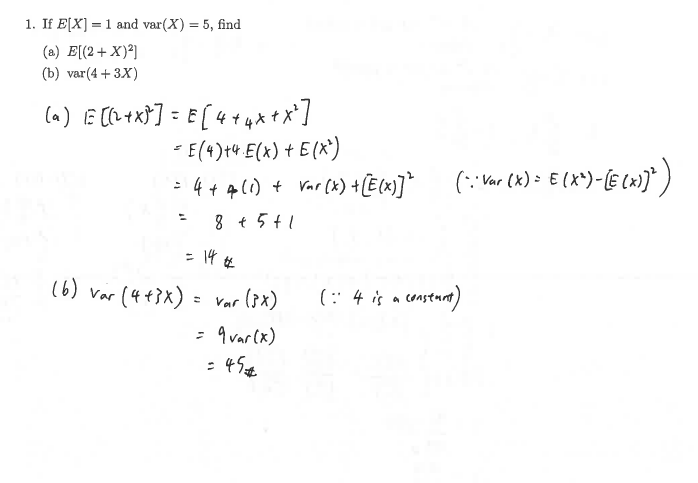 1. If E[X] = 1 and var(X) = 5, find
(a) E[(2 + X)²]
(b) var(4 + 3X)
(a) E[(2+X)²] = E[4 + 4X + X²]
= E(4) + 4·E(X) + E(X²)
= 4 + 4(1) + Var(X) + [E(X)]² (∵ Var(X) = E(X²) - [E(X)]²)
= 8 + 5 + 1
= 14 #
(b) Var(4+3X) = Var(3X) (∵ 4 is a constant)
= 9 Var(X)
= 45 #